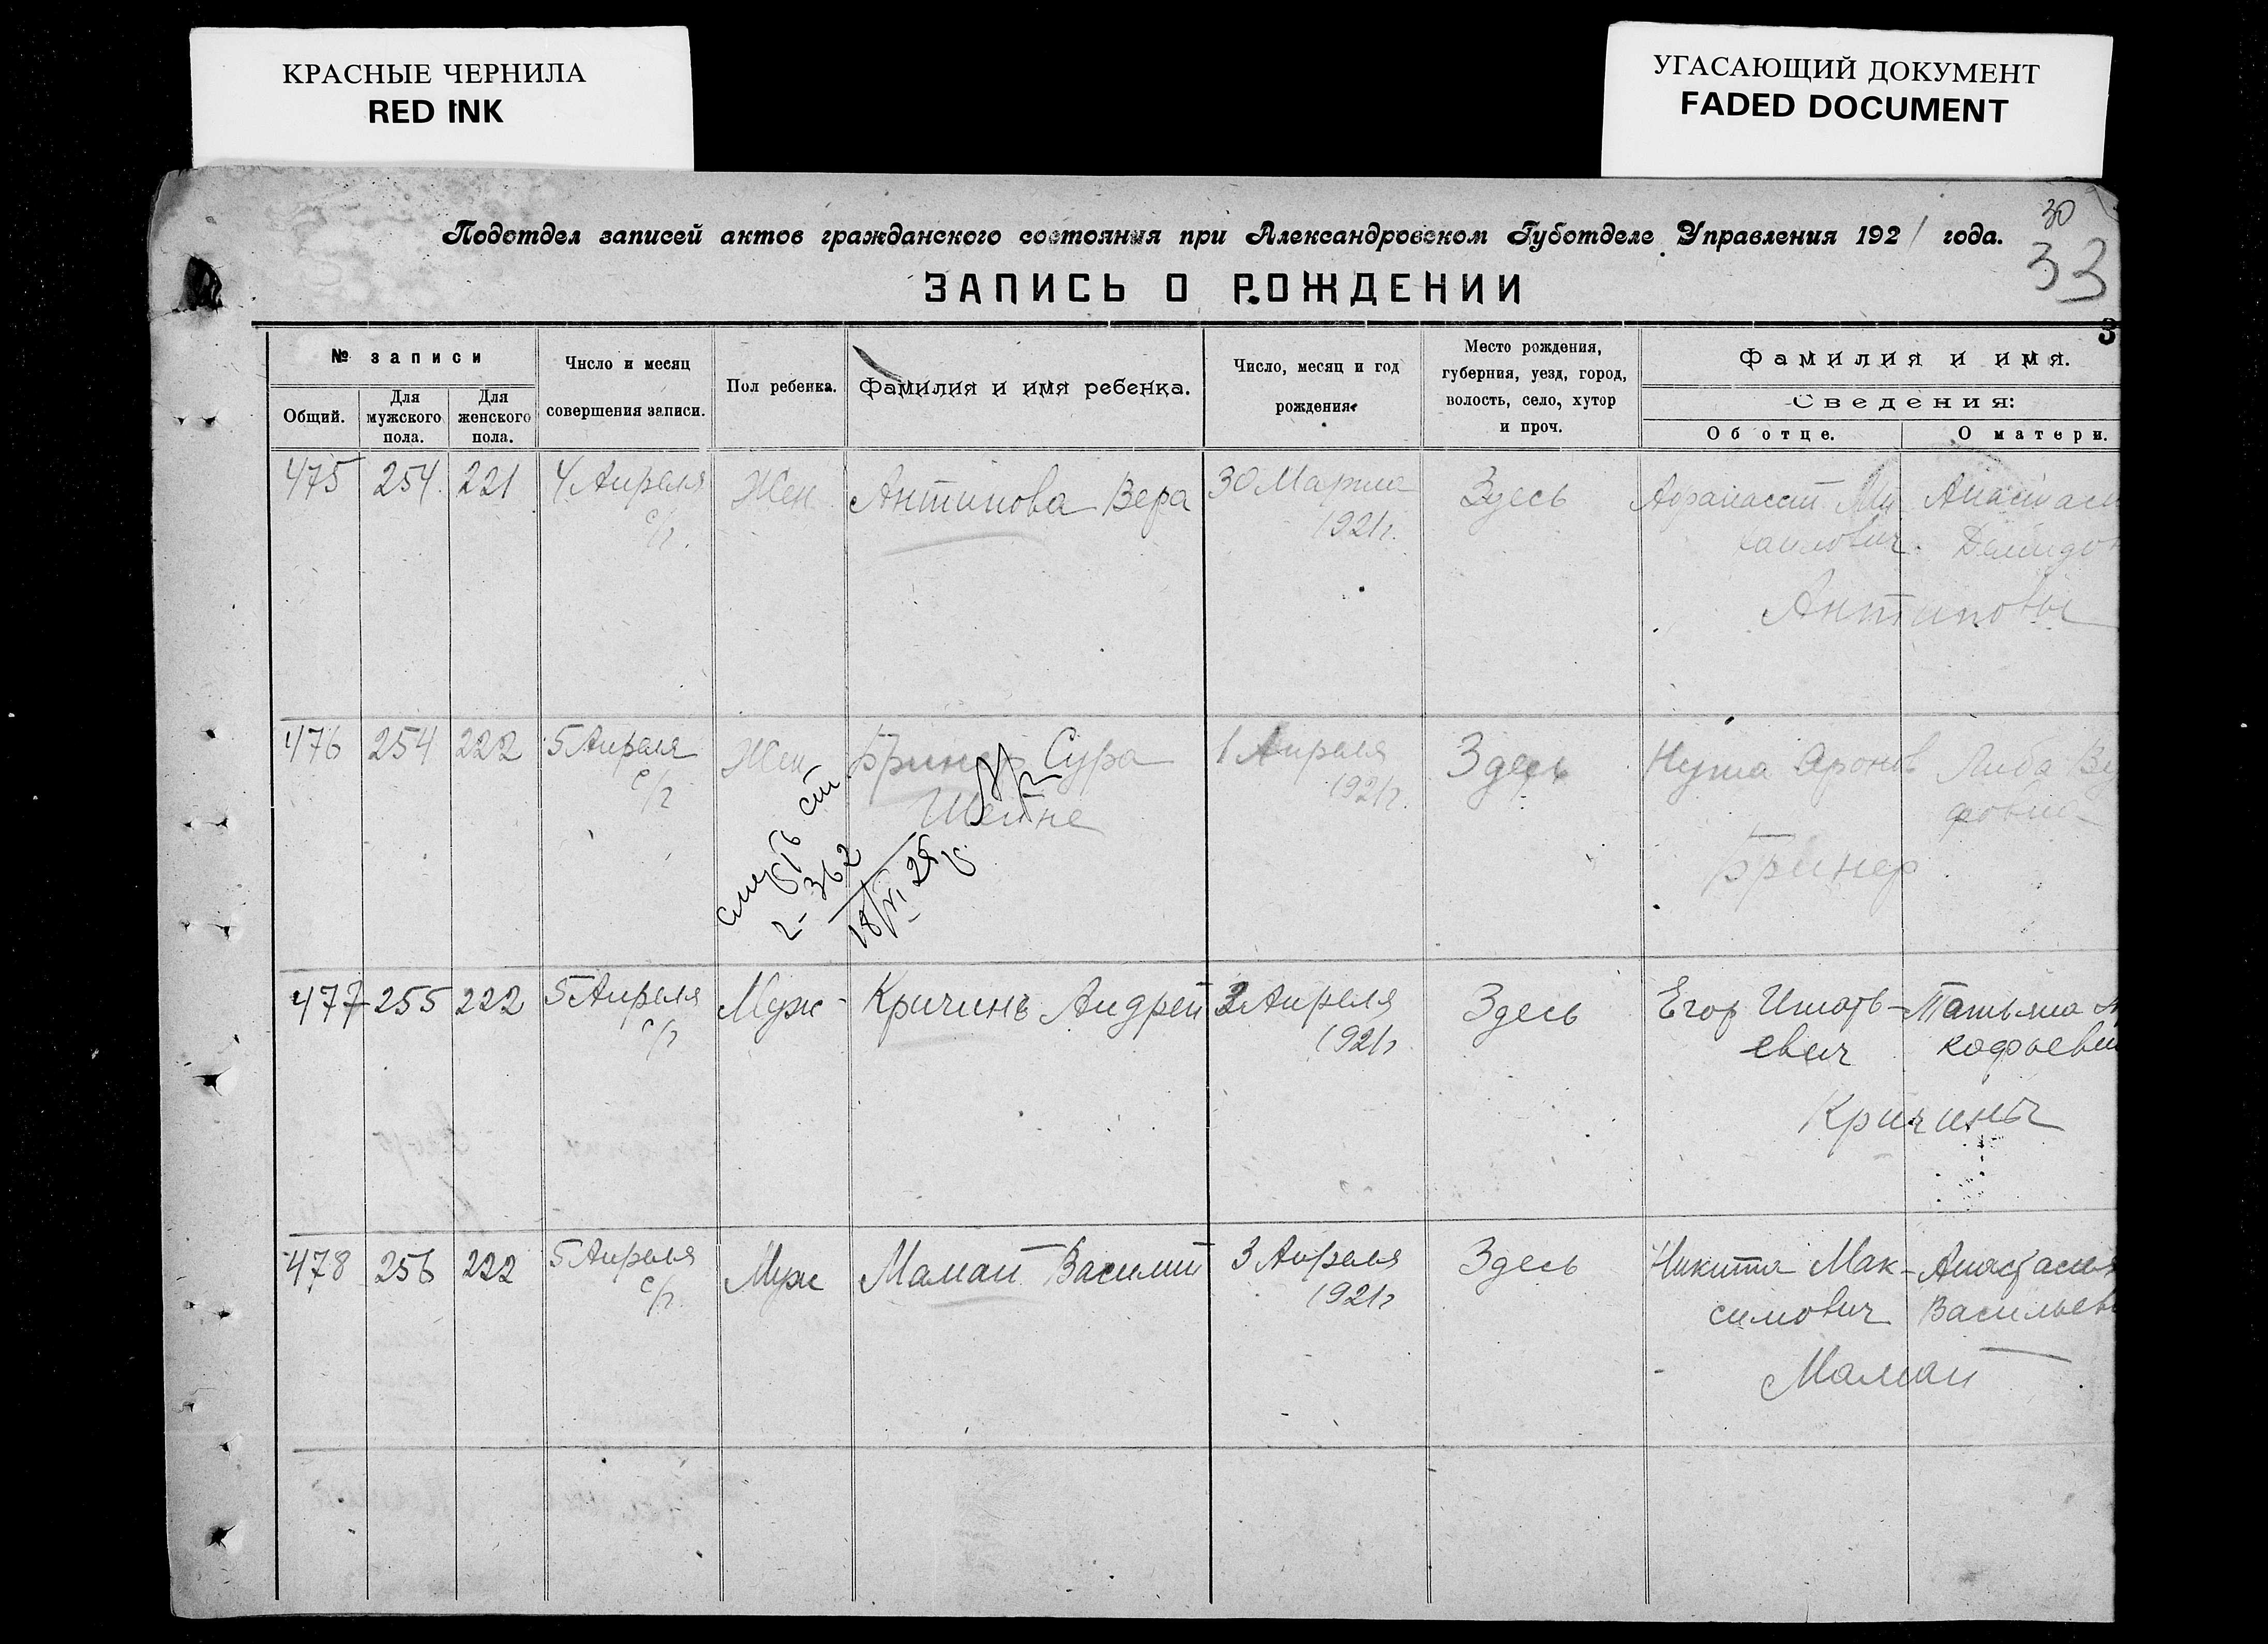 КРАСНЫЕ ЧЕРНИЛА
RED INK
УГАСАЮЩИЙ ДОКУМЕНТ
FADED DOCUMENT
30
33
Подотдел записей актов гражданского состояния при Александровском Губотделе Управления 1921 года.
ЗАПИСЬ О РОЖДЕНИИ
3
№ записи
Общий.
Для мужского пола.
Для женского пола.
Число и месяц
совершения записи.
Пол ребенка.
Фамилия и имя ребенка.
Число, месяц и год
рождения
Место рождения,
губерния, уезд, город,
волость, село, хутор
и проч.
Фамилия и имя.
Сведения:
Об отце.
О матери.
475 254 221 4 Апреля Жен Антипова Вера 30 Марта Здесь Афанасий Ми
с/г. 1921г. хаилович
Антиповы
476 254 222 5 Апреля Жен Бринер Сура 1 Апреля Здесь Нута Аронов Либа
с/г Шейне 1921г.
Бринер
2-362
18/VI 28
477 255 222 5 Апреля Муж Кричинъ Андрей Апреля Здесь Егор Игнать- Татьяна
с/г 1921г евич
Кричины
478 256 222 5 Апреля Муж Мамай Василий 3 Апреля Здесь Никита Мак- Анастасия
с/г 1921г симович Васильев
Мамай